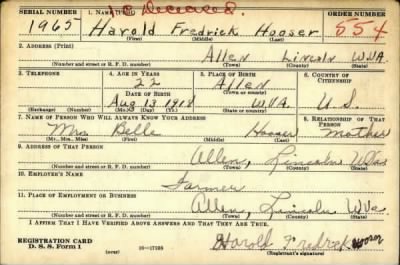 SERIAL NUMBER 1. NAME (Print) 1-C Deceased. ORDER NUMBER
1965 Harold Fredrick Hooser 554
(First) (Middle) (Last)
2. ADDRESS (Print)
Allen Lincoln W.VA.
(Number and street or R. F. D. number) (Town) (County) (State)
3. TELEPHONE 4. AGE IN YEARS 5. PLACE OF BIRTH 6. COUNTRY OF CITIZENSHIP
22 Allen
DATE OF BIRTH (Town or county)
Aug 13 1918 W.VA. U.S.
(Exchange) (Number) (Mo.) (Day) (Yr.) (State or country)
7. NAME OF PERSON WHO WILL ALWAYS KNOW YOUR ADDRESS 8. RELATIONSHIP OF THAT PERSON
Mrs. Belle Hooser Mother
(Mr., Mrs., Miss) (First) (Middle) (Last)
9. ADDRESS OF THAT PERSON
Allen, Lincoln W.Va
(Number and street or R. F. D. number) (Town) (County) (State)
10. EMPLOYER'S NAME
Farmer
11. PLACE OF EMPLOYMENT OR BUSINESS
Allen, Lincoln W Va
(Number and street or R. F. D. number) (Town) (County) (State)
I AFFIRM THAT I HAVE VERIFIED ABOVE ANSWERS AND THAT THEY ARE TRUE.
REGISTRATION CARD
D. S. S. Form 1 (over) 16—17105 Harold Fredrick Hooser
(Registrant's signature)